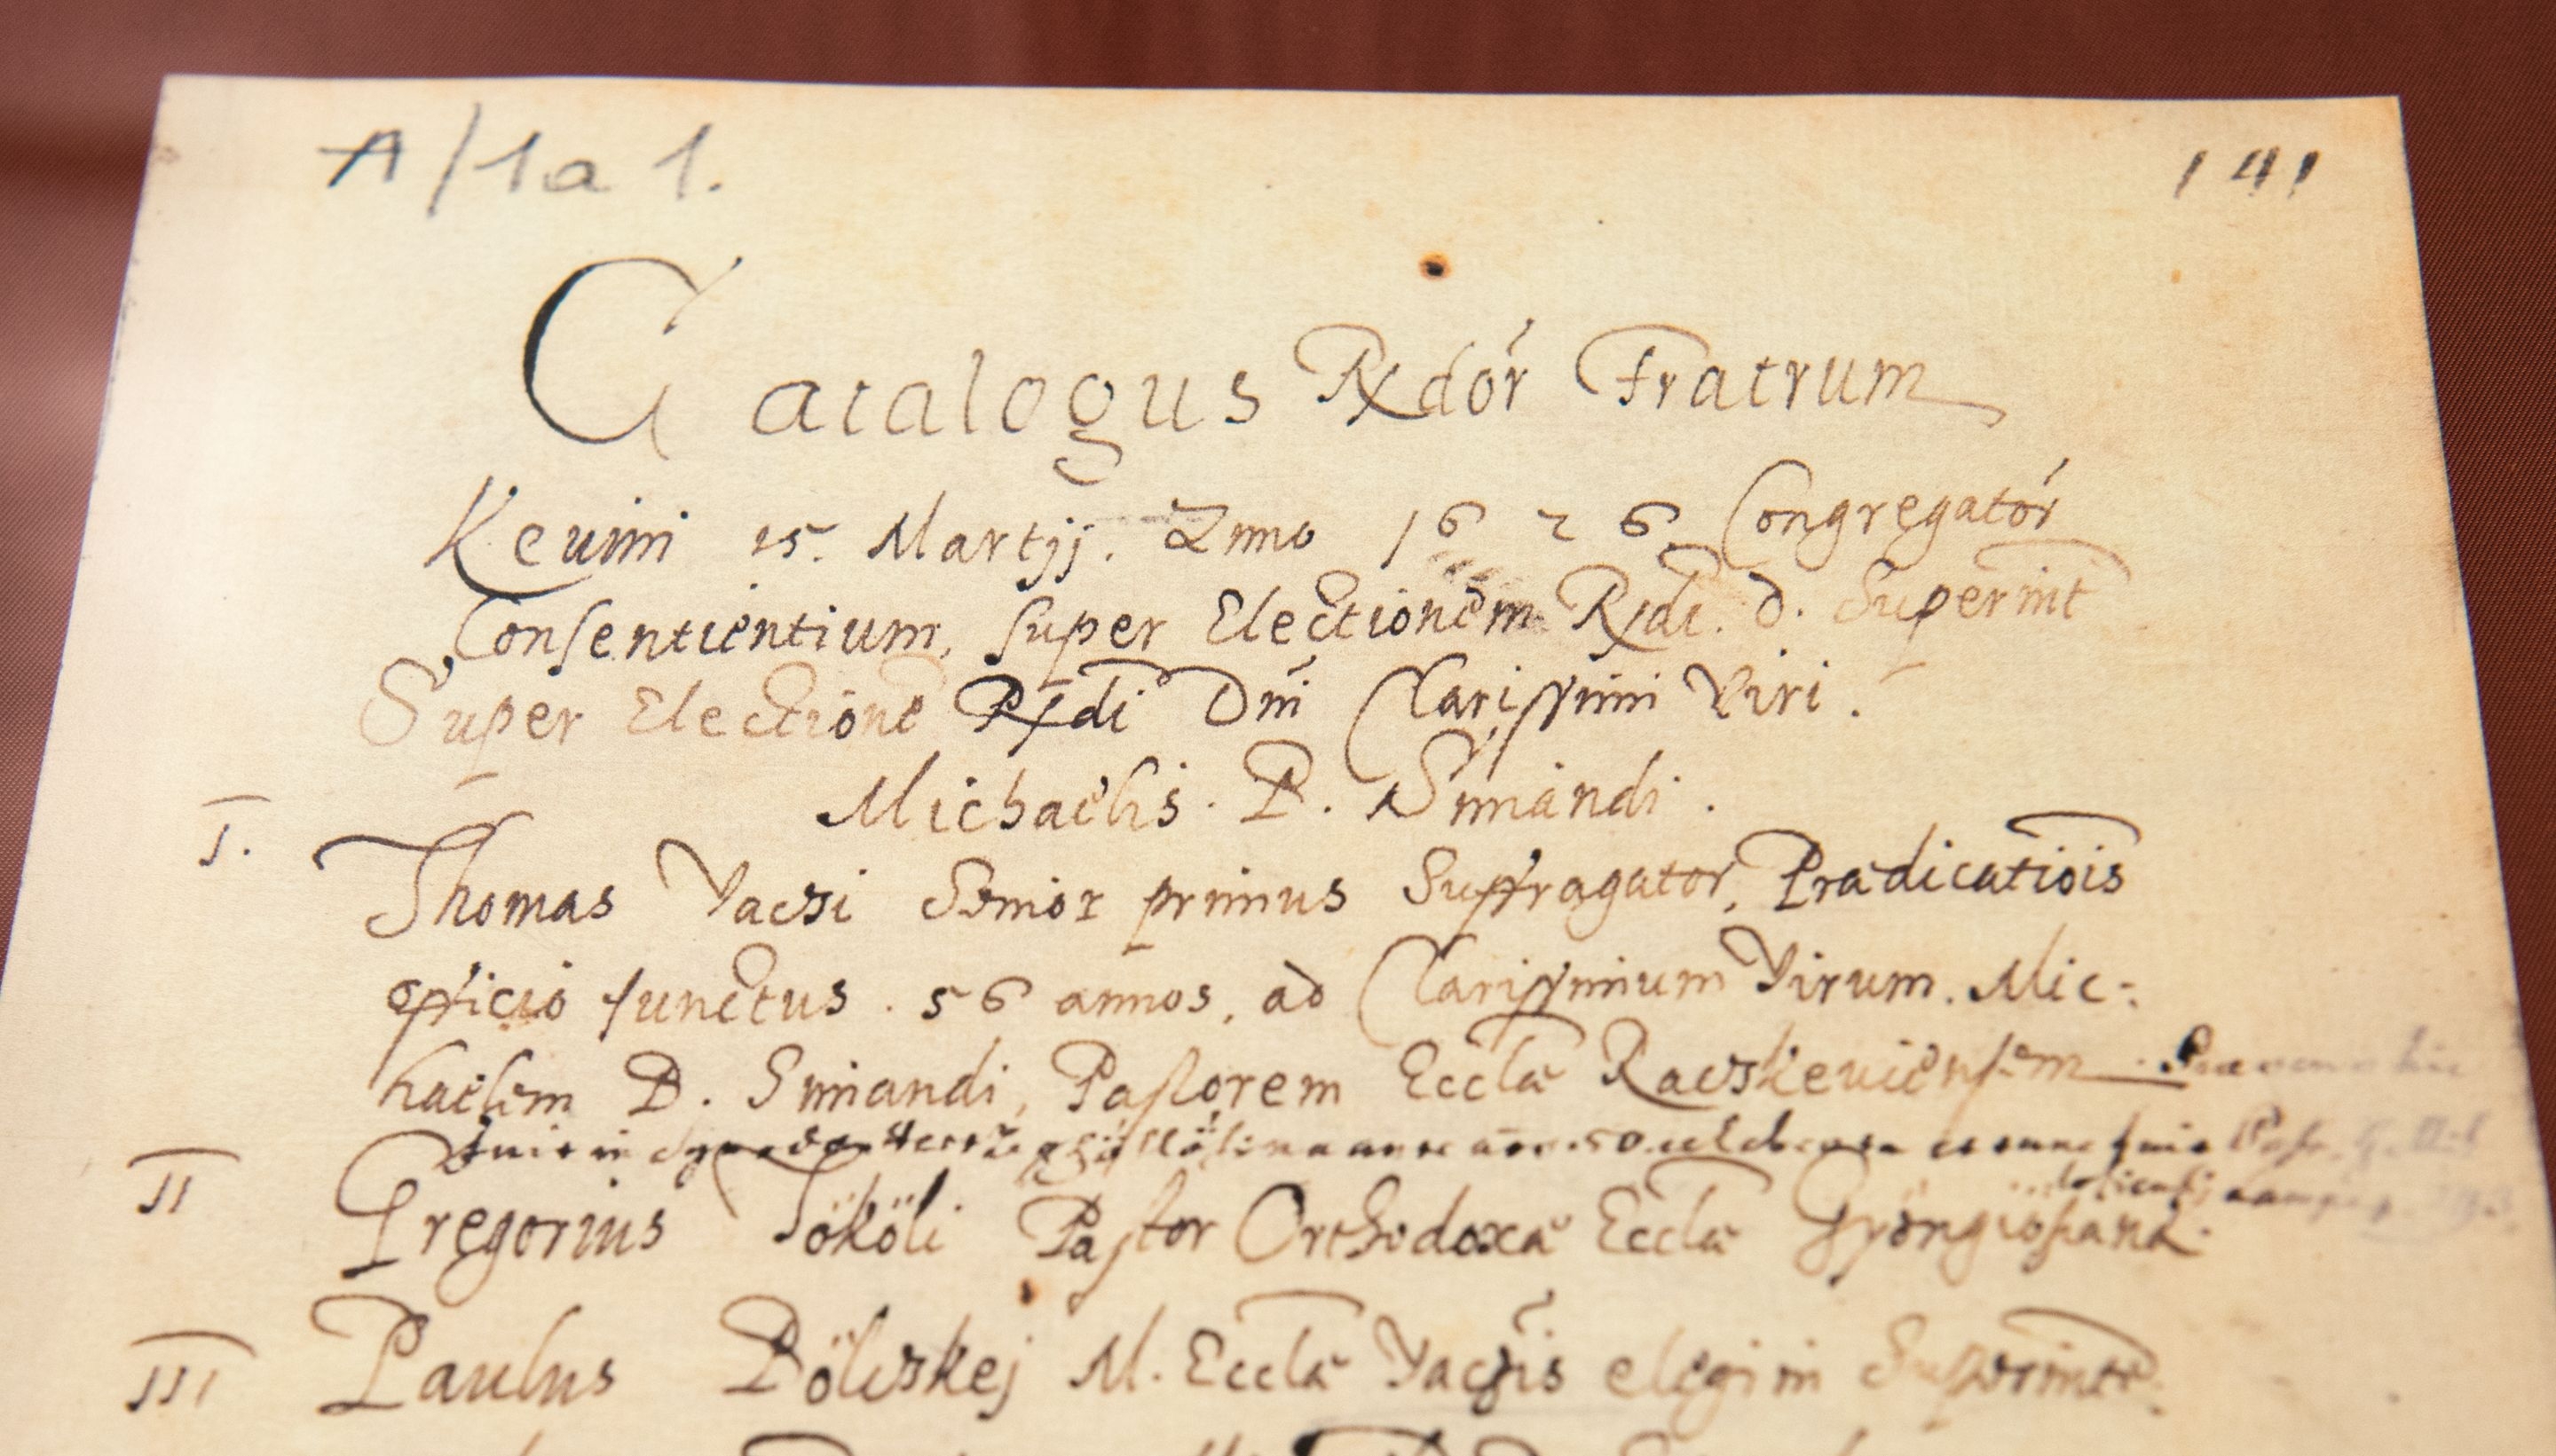 A/1a 1.
141
Catalogus Rxdór Fratrum
Keuini 15. Martij. Anno 1626 Congregatór
Consentientium, super Electionem Rxdi. D. Superint
Super Electione Rxdi Dni Clarissimi Viri.
Michaelis. B. Simándi.
I.
Thomas Vaczi Senior primus Suffragator, Prædicatiois
officio functus. 56 annos, ad Clarissimum Virum. Mic-
haelem B. Simandi, Pastorem Eccla Raczkeuiensem
fuit in
II
Gregorius Tököli Pastor Orthodoxa Eccla Gyöngiosiana.
III
Paulus Bölcskej M. Eccla Vaczis elegi in Superinte